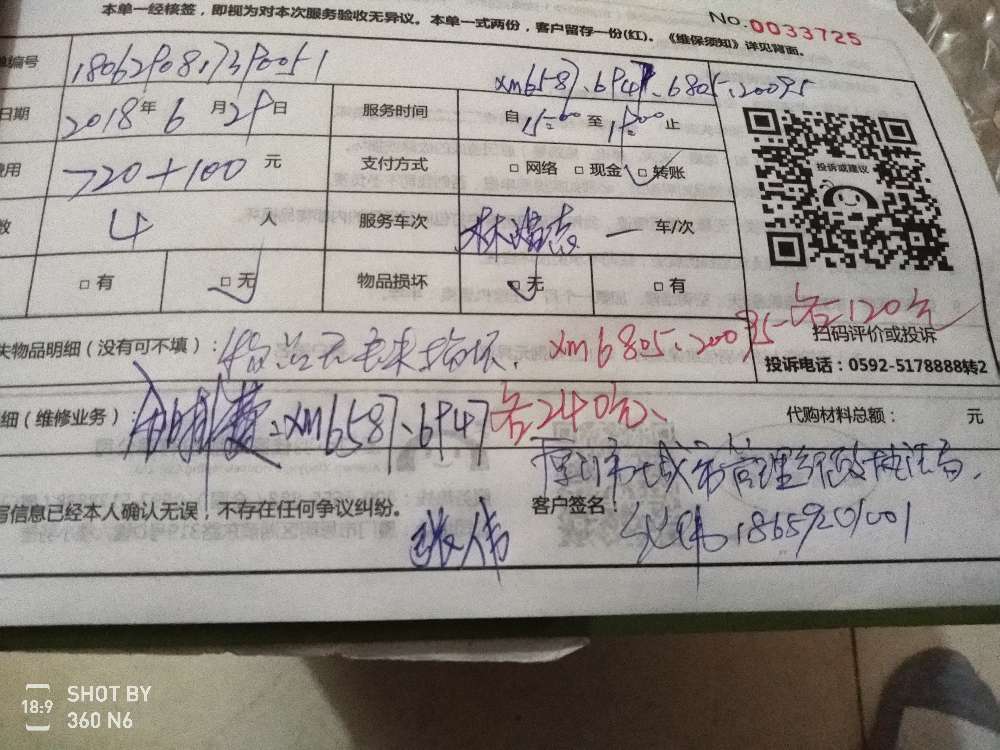 本单一经核签，即视为对本次服务验收无异议。本单一式两份，客户留存一份(红)。《维保须知》详见背面。
No.0033725
编号
xm6587、6947、6805、20095
日期 2018年6月29日 服务时间 自15:00至18:00止
用 720+100元 支付方式 □网络 □现金 □转账
投诉或建议
数 4人 服务车次 一 车/次
□有 □无 物品损坏 □无 □有
失物品明细（没有可不填）： xm6805、20095各120元
扫码评价或投诉
投诉电话：0592-5178888转2
细（维修业务）： xm6587、6947各240元、 代购材料总额： 元
写信息已经本人确认无误，不存在任何争议纠纷。 客户签名： 厦门市城市管理行政执法局，
18659201001
18:9
SHOT BY
360 N6